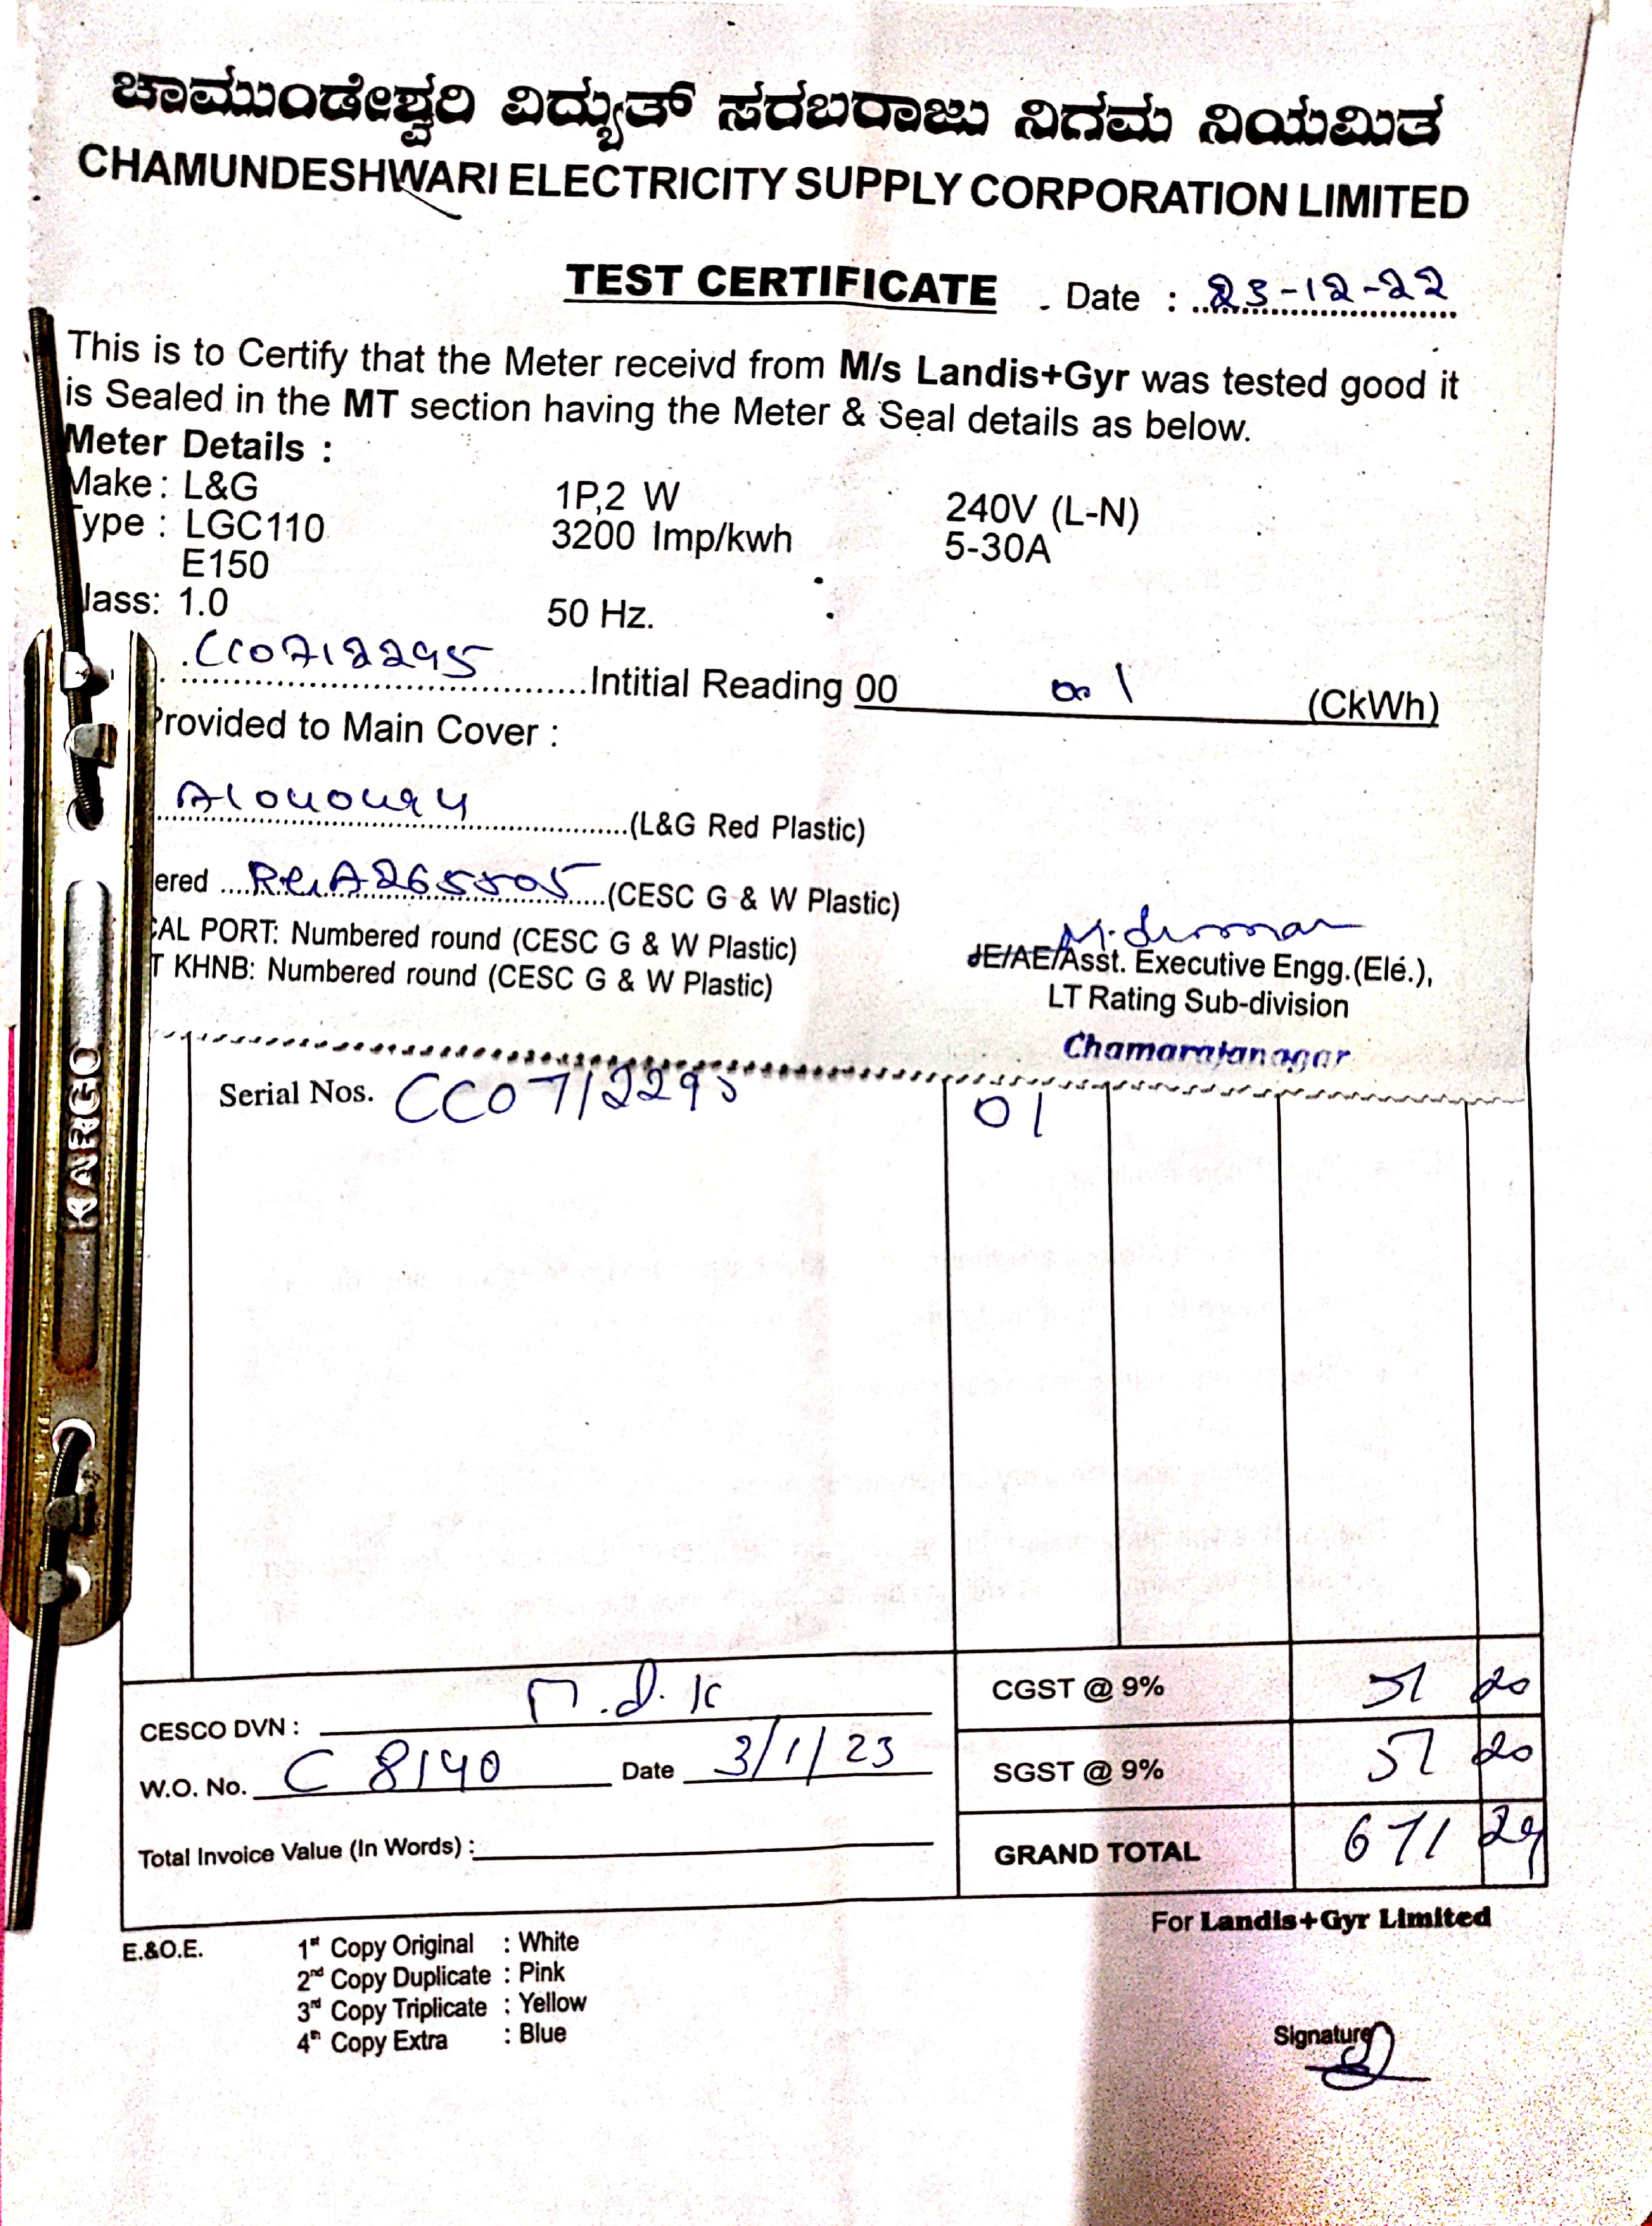 ಚಾಮುಂಡೇಶ್ವರಿ ವಿದ್ಯುತ್ ಸರಬರಾಜು ನಿಗಮ ನಿಯಮಿತ
CHAMUNDESHWARI ELECTRICITY SUPPLY CORPORATION LIMITED
TEST CERTIFICATE Date : 23-12-22
This is to Certify that the Meter receivd from M/s Landis+Gyr was tested good it
is Sealed in the MT section having the Meter & Seal details as below.
Meter Details :
Make : L&G 1P,2 W 240V (L-N)
Type : LGC110 3200 Imp/kwh 5-30A
E150
lass: 1.0 50 Hz.
CC0712295 Intitial Reading 00 001 (CkWh)
Provided to Main Cover :
A1040494 (L&G Red Plastic)
ered A265505 (CESC G & W Plastic)
CAL PORT: Numbered round (CESC G & W Plastic)
T KHNB: Numbered round (CESC G & W Plastic)
JE/AE/Asst. Executive Engg.(Ele.),
LT Rating Sub-division
Chamarajanagar
KANGO
Serial Nos. CC0712295 01
CESCO DVN : CGST @ 9% 51 20
W.O. No. C 8140 Date 3/1/23 SGST @ 9% 51 20
Total Invoice Value (In Words) : GRAND TOTAL 671 24
For Landis+Gyr Limited
E.&O.E. 1st Copy Original : White
2nd Copy Duplicate : Pink
3rd Copy Triplicate : Yellow
4th Copy Extra : Blue
Signature